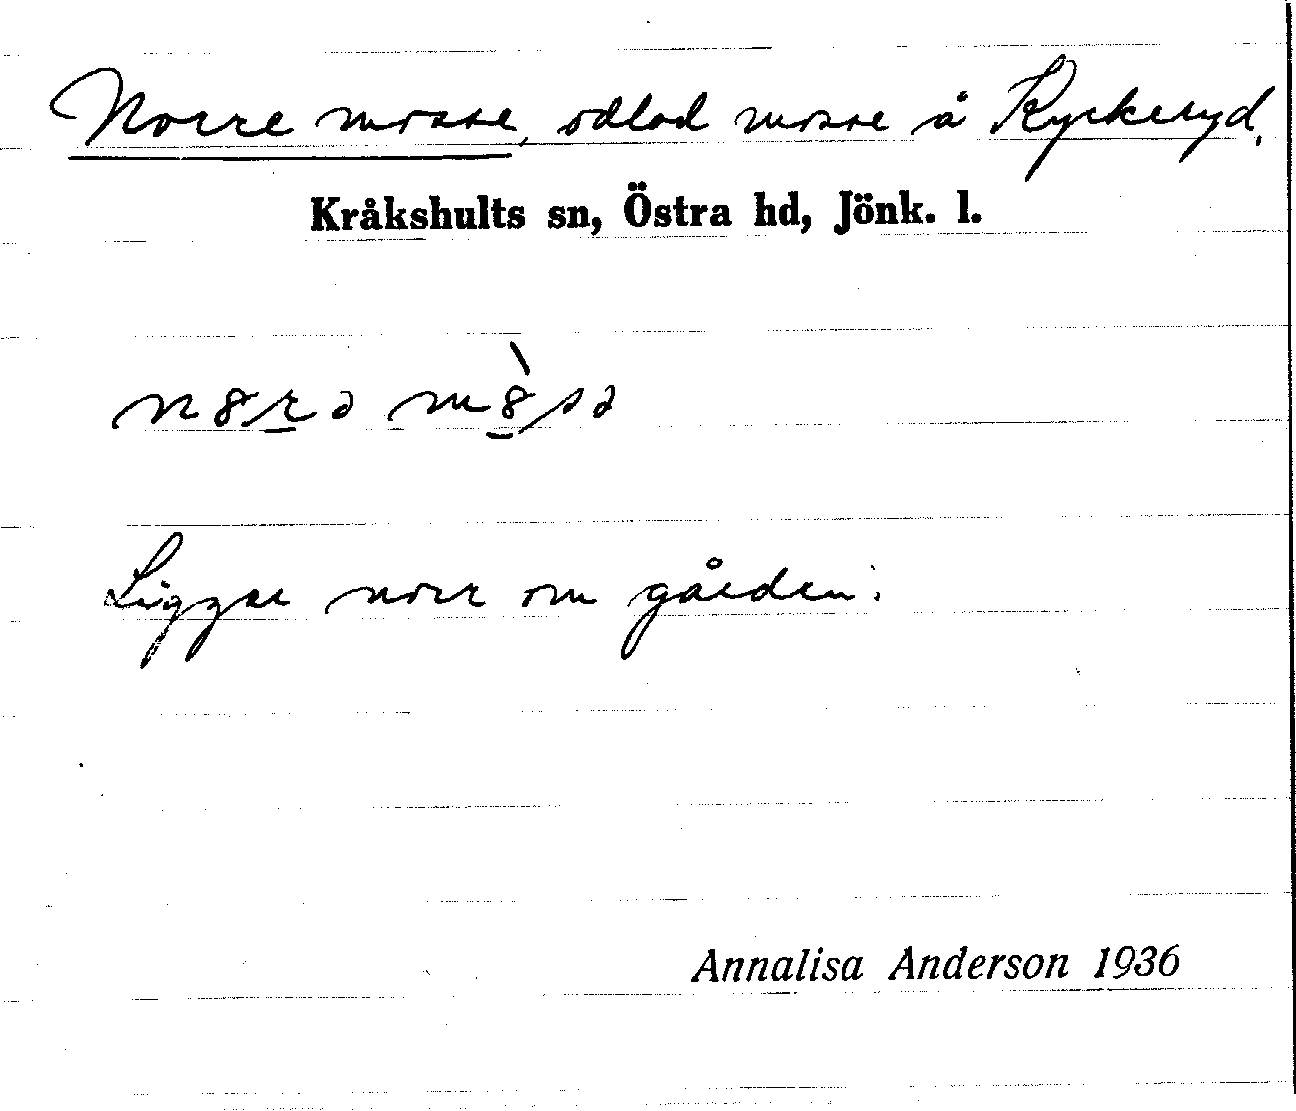 Norre mosse, odlad mosse å Kyrkeryd.
Kråkshults sn, Östra hd, Jönk. l.
Ligger norr om gården.
Annalisa Anderson 1936